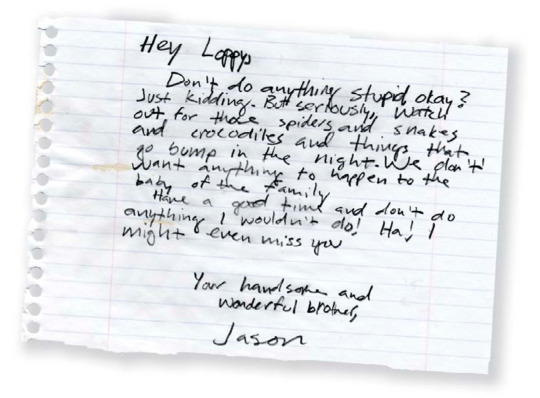 Hey Loppy,
Don't do anything stupid okay?
Just kidding. But seriously, watch
out for those spiders and snakes
and crocodiles and things that
go bump in the night. We don't
want anything to happen to the
baby of the family
Have a good time and don't do
anything I wouldn't do! Ha! I
might even miss you
Your handsome and
wonderful brother,
Jason